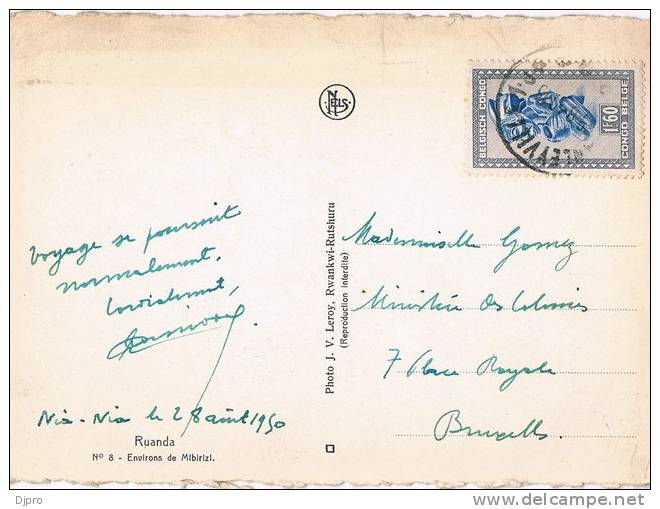 NELS
BELGISCH CONGO
1F60
CONGO BELGE
Voyage se poursuit
normalement,
Cordialement,
Nia-Nia le 28 août 1950
Ruanda
No 8 - Environs de Mibirizi.
Photo J. V. Leroy, Rwankwi-Rutshuru
(Reproduction interdite)
Mademoiselle Gomez
Ministère des Colonies
7 Place Royale
Bruxelles.
Djpro
www.delcampe.net